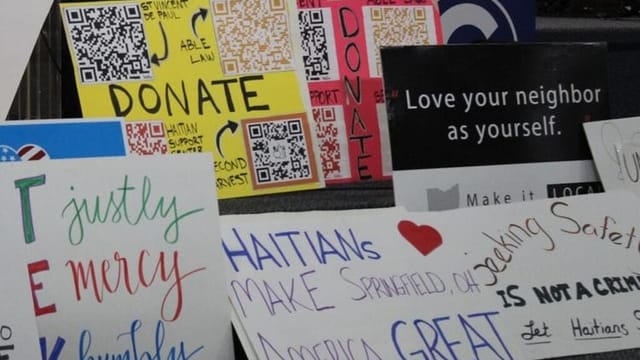 ST VINCENT
DE PAUL
ABLE
LAW
DONATE
HAITIAN
SUPPORT
CENTER
SECOND
HARVEST
DONATE
Love your neighbor
as yourself.
Make it LOCAL
justly
mercy
humbly
HAITIANS
MAKE SPRINGFIELD, OH
AMERICA GREAT
Seeking Safety
IS NOT A CRIME
Let Haitians